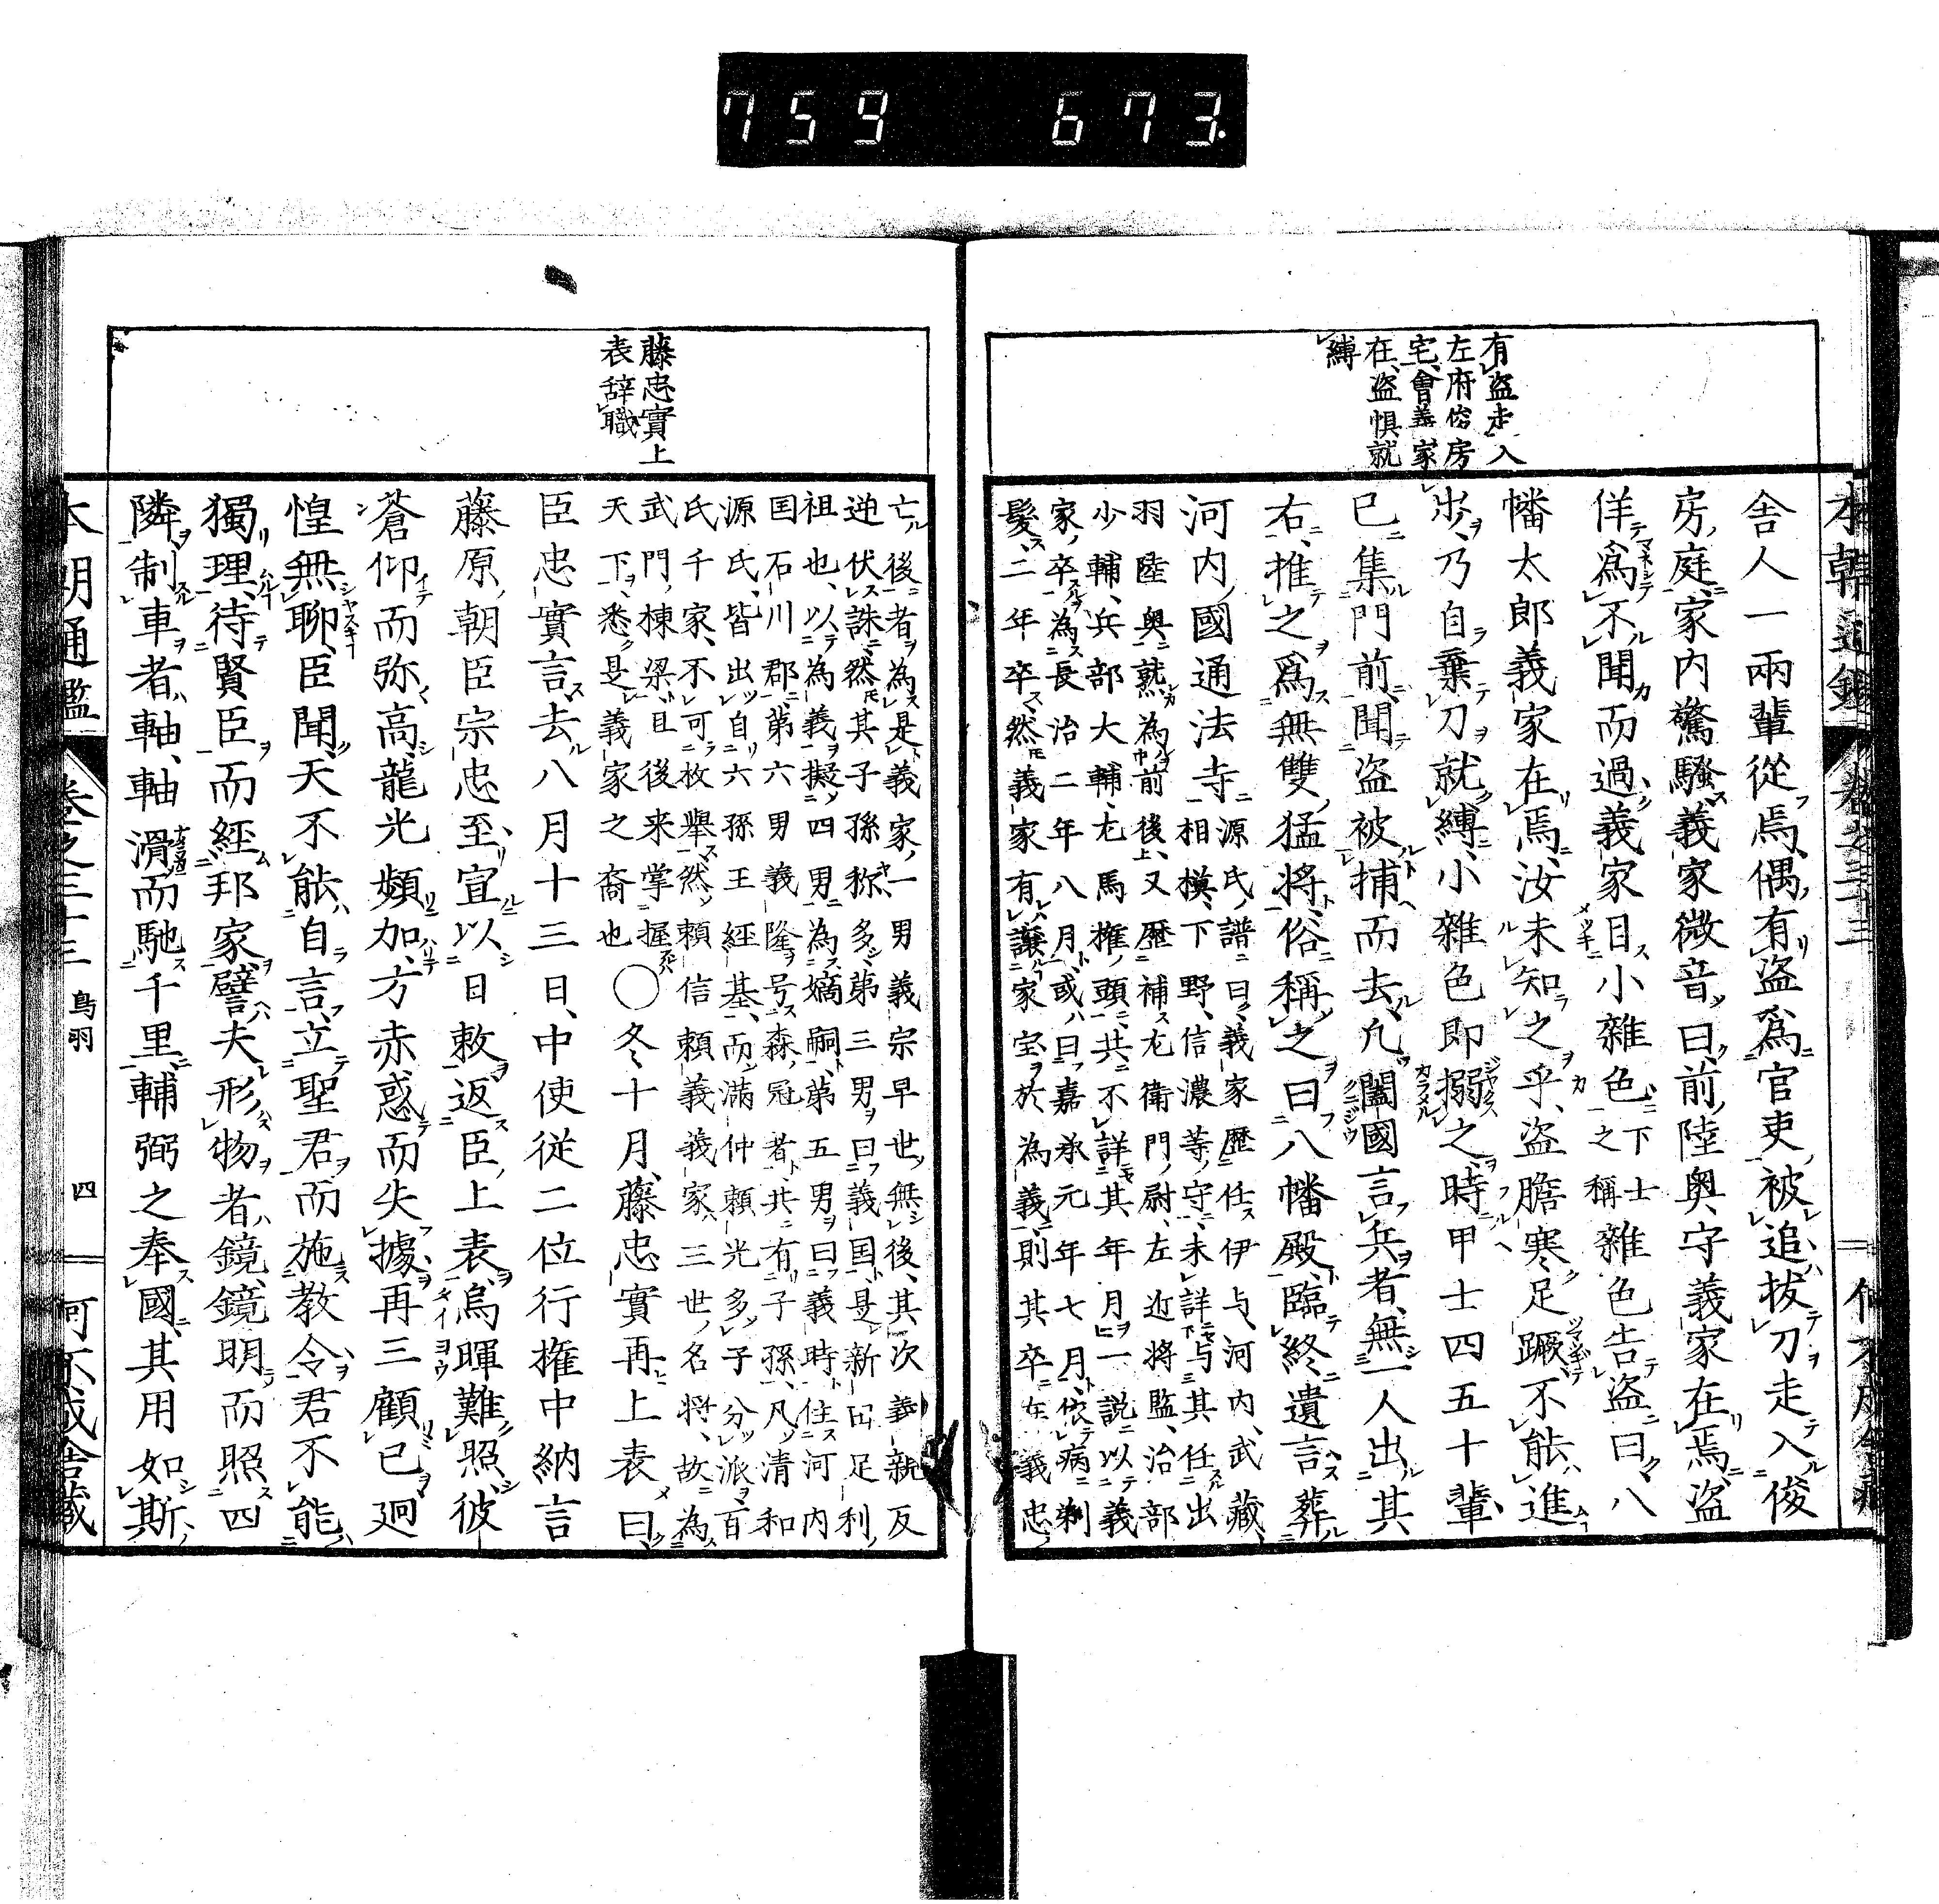 759 673.
有盗走入
左府俊房
宅會義家
在盗惧就
縛
舎人一兩輩從焉偶有盗爲官吏被追拔刀走入俊
房庭家内驚騒義家微音曰前陸奥守義家在焉盗
佯爲不聞而過義家目小雜色下士之稱雜色告盗曰八
幡太郎義家在焉汝未知之乎盗膽寒足蹶不能進
歩乃自棄刀就縛小雜色即搦之時甲士四五十輩
已集門前聞盗被捕而去凢闔國言兵者無一人出其
右推之爲無雙猛将俗稱之曰八幡殿臨終遺言葬
河内國通法寺源氏譜曰義家歴任伊与河内武藏
相模下野信濃等守未詳与其任出
羽陸奥孰為前後又歴補尤衛門尉左近将監治部
少輔兵部大輔尤馬權頭共不詳其年月一説以義
家卒為長治二年八月或曰嘉承元年七月依病剃
髪二年卒然義家有譲家宝於為義則其卒在義忠
亡後者為是義家一男義宗早世無後其次義親反
逆伏誅然其子孫稱多第三男曰義国是新田足利
祖也以為義擬四男為嫡嗣第五男曰義時住河内
国石川郡第六男義隆号森冠者共有子孫凡清和
源氏皆出自六孫王經基而滿仲頼光多子分派百
氏千家不可枚舉然頼信頼義義家三世名将故為
武門棟梁且後来掌握
天下悉是義家之裔也○冬十月藤忠實再上表曰
臣忠實言去八月十三日中使従二位行權中納言
藤原朝臣宗忠至宣以日敕返臣上表烏暉難照彼
蒼仰而弥高龍光頻加方赤惑而失據再三顧已廻
惶無聊臣聞天不能自言立聖君而施教令君不能
獨理待賢臣而經邦家譬夫形物者鏡鏡明而照四
隣制車者軸軸滑而馳千里輔弼之奉國其用如斯
藤忠實上
表辞職
本朝通鑑 卷之三十三 鳥羽 四